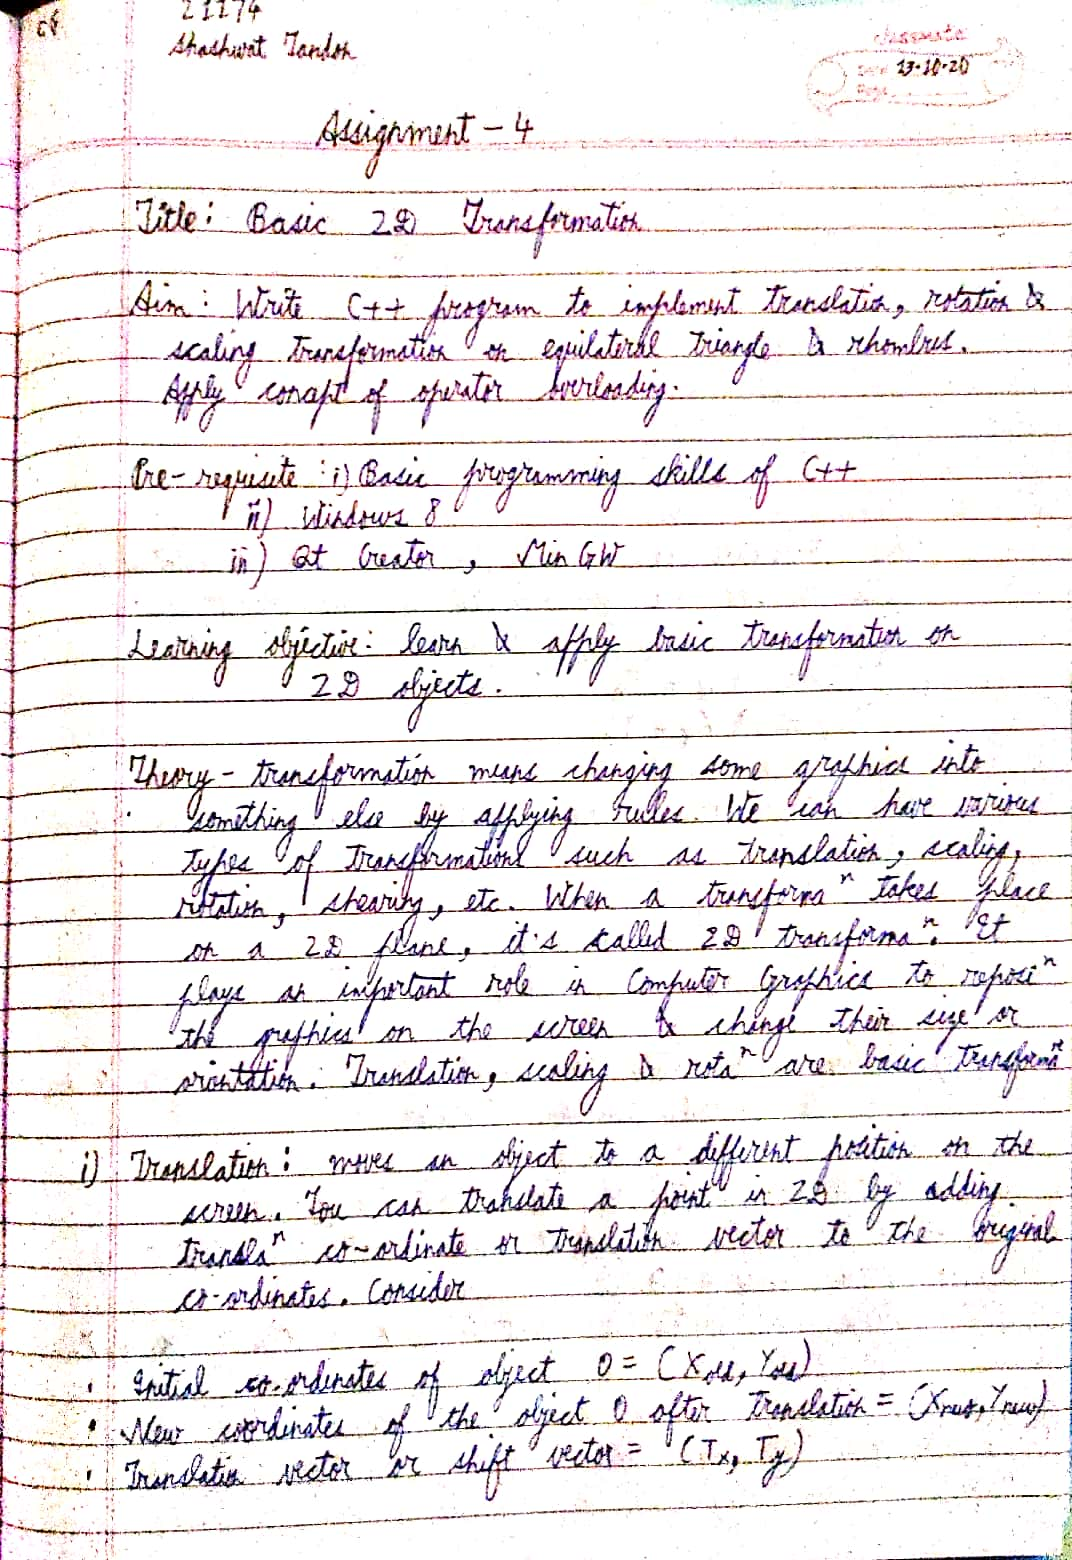 21174
Shashwat Tandon
classmate
Date 23-10-20
Page
Assignment - 4
Title: Basic 2D Transformation
Aim: Write C++ program to implement translation, rotation &
scaling transformation on equilateral triangle & rhombus.
Apply concept of operator overloading.
Pre-requisite: i) Basic programming skills of C++
ii) Windows 8
iii) Qt Creator, Min GW
Learning objective: learn & apply basic transformation on
2D objects.
Theory - transformation means changing some graphics into
something else by applying rules. We can have various
types of transformations such as translation, scaling,
rotation, shearing, etc. When a transformaⁿ takes place
on a 2D plane, it's called 2D transformaⁿ. It
plays an important role in Computer Graphics to reposiⁿ
the graphics on the screen & change their size or
orientation. Translation, scaling & rotaⁿ are basic transformaⁿ
i) Translation: moves an object to a different position on the
screen. You can translate a point in 2D by adding
translaⁿ co-ordinate or translation vector to the original
co-ordinates. Consider
• Initial co-ordinates of object O = (Xold, Yold)
• New coordinates of the object O after translation = (Xnew, Ynew)
• Translation vector or shift vector = (Tx, Ty)